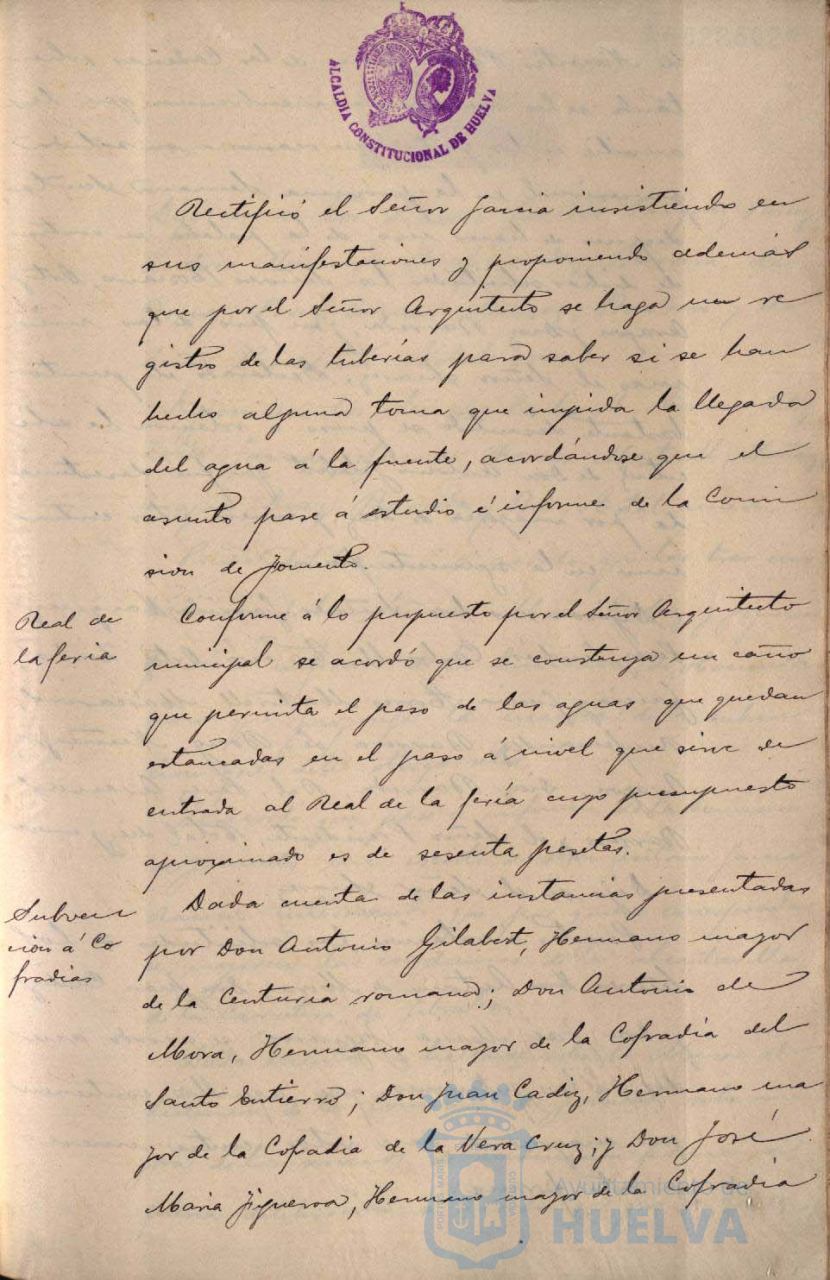 ALCALDIA CONSTITUCIONAL DE HUELVA
Rectificó el Señor Garcia insistiendo en
sus manifestaciones y proponiendo además
que por el Señor Arquitecto se haga un re
gistro de las tuberías para saber si se han
hecho alguna toma que impida la llegada
del agua á la fuente, acordándose que el
asunto pase á estudio é informe de la Comi
sion de Fomento.
Real de
la feria
Conforme á lo propuesto por el Señor Arquitecto
municipal se acordó que se construya un caño
que permita el paso de las aguas que quedan
estancadas en el paso á nivel que sirve de
entrada al Real de la fería cuyo presupuesto
aproximado es de sesenta pesetas.
Subven
cion á Co
fradias
Dada cuenta de las instancias presentadas
por Don Antonio Gilabert, Hermano mayor
de la Centuria romana; Don Antonio de
Mora, Hermano mayor de la Cofradía del
Santo Entierro; Don Juan Cadiz, Hermano ma
yor de la Cofradia de la Vera Cruz; y Don José
Maria Figueroa, Hermano mayor de la Cofradia
Ayuntamiento de
HUELVA